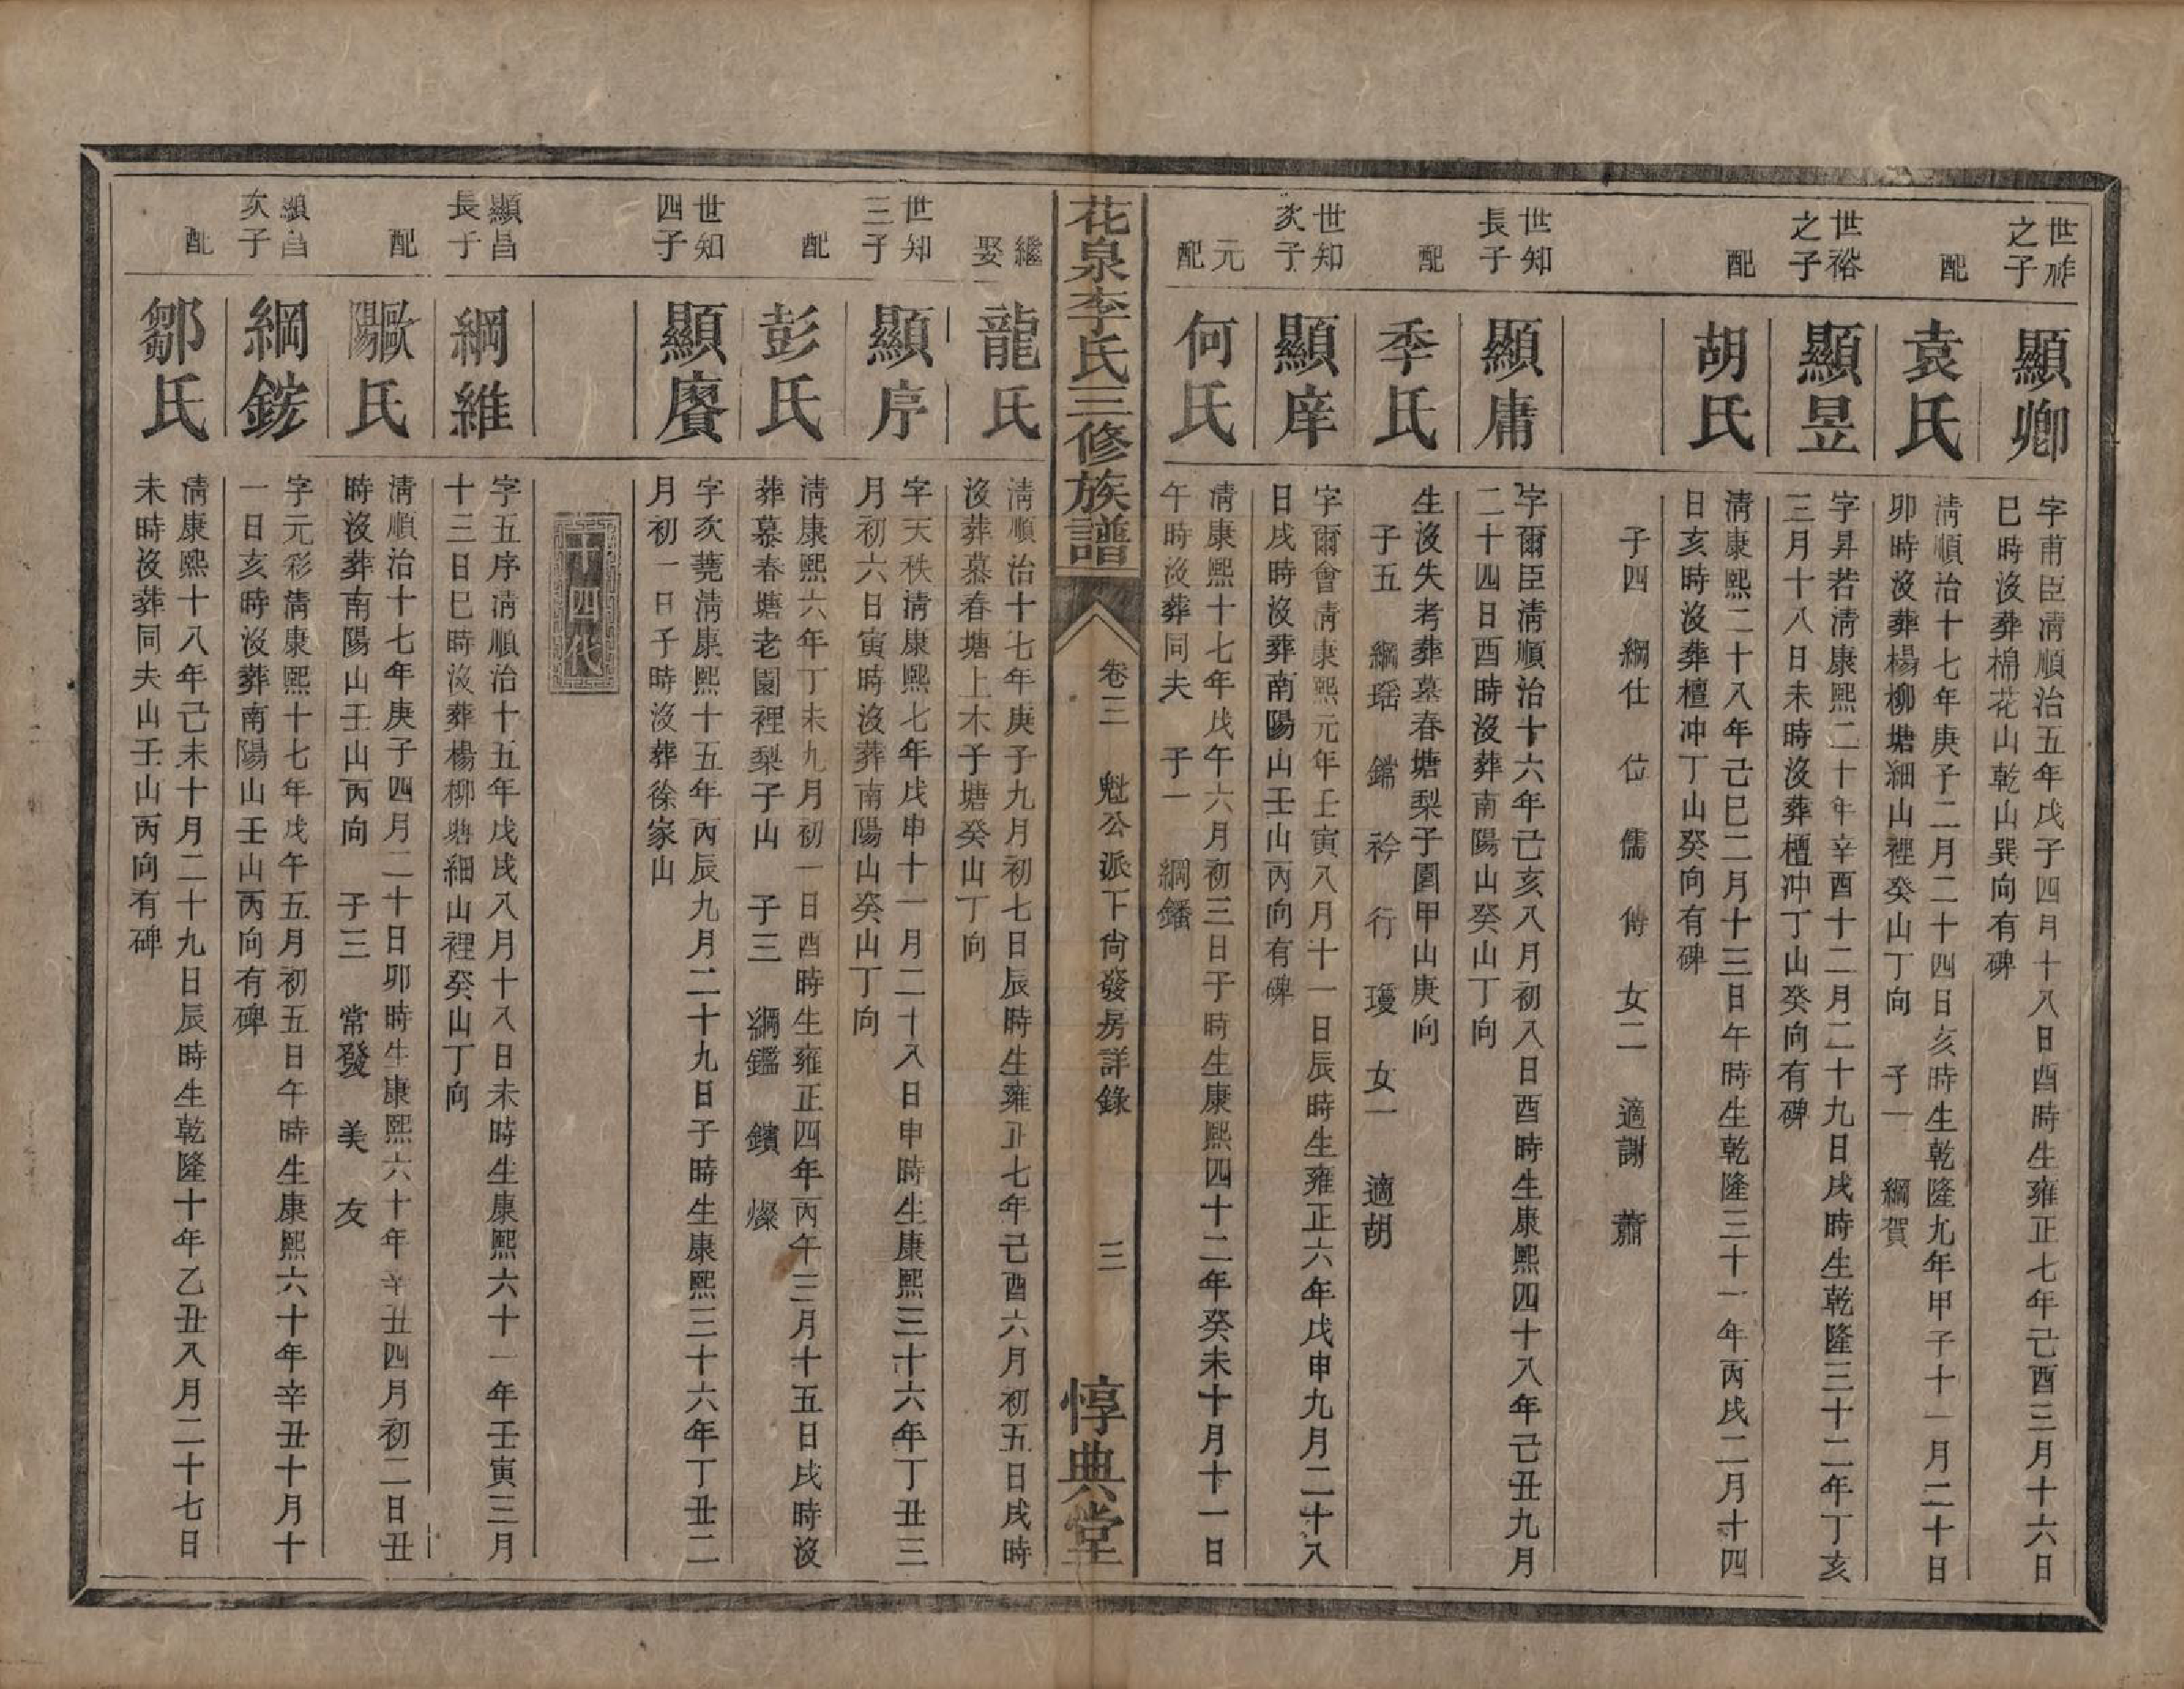 世祚
之子
顯卿
字甫臣淸順治五年戊子四月十八日酉時生雍正七年己酉三月十六日
巳時沒葬棉花山乾山巽向有碑
配
袁氏
淸順治十七年庚子二月二十四日亥時生乾隆九年甲子十一月二十日
卯時沒葬楊柳塘細山裡癸山丁向 子一 綱賀
世裕
之子
顯昱
字昇若淸康熙二十年辛酉十二月二十九日戌時生乾隆三十二年丁亥
三月十八日未時沒葬檀冲丁山癸向有碑
配
胡氏
淸康熙二十八年己巳二月十三日午時生乾隆三十一年丙戌二月十四
日亥時沒葬檀冲丁山癸向有碑
子四 綱仕 位 儒 傅 女二 適謝 蕭
世知
長子
顯庸
字爾臣淸順治十六年己亥八月初八日酉時生康熙四十八年己丑九月
二十四日酉時沒葬南陽山癸山丁向
配
季氏
生沒失考葬墓春塘梨子園甲山庚向
子五 綱瑶 鐺 衿 行 瓊 女一 適胡
世知
次子
顯庠
字爾會淸康熙元年壬寅八月十一日辰時生雍正六年戊申九月二十八
日戌時沒葬南陽山壬山丙向有碑
元
配
何氏
淸康熙十七年戊午六月初三日子時生康熙四十二年癸未十月十一日
午時沒葬同夫 子一 綱鐇
花泉李氏三修族譜
卷三 魁公派下尙發房詳錄
三
惇典堂
繼
娶
龍氏
淸順治十七年庚子九月初七日辰時生雍正七年己酉六月初五日戌時
沒葬慕春塘上木子塘癸山丁向
世知
三子
顯序
字天秩淸康熙七年戊申十一月二十八日申時生康熙三十六年丁丑三
月初六日寅時沒葬南陽山癸山丁向
配
彭氏
淸康熙六年丁未九月初一日酉時生雍正四年丙午三月十五日戌時沒
葬慕春塘老園裡梨子山 子三 綱鑑 鑌 燦
世知
四子
顯賡
字次蕘淸康熙十五年丙辰九月二十九日子時生康熙三十六年丁丑二
月初一日子時沒葬徐家山
十四代
顯昌
長子
綱維
字五序淸順治十五年戊戌八月十八日未時生康熙六十一年壬寅三月
十三日巳時沒葬楊柳塘細山裡癸山丁向
配
歐陽氏
淸順治十七年庚子四月二十日卯時生康熙六十年辛丑四月初二日丑
時沒葬南陽山壬山丙向 子三 常發 美 友
顯昌
次子
綱鋐
字元彩淸康熙十七年戊午五月初五日午時生康熙六十年辛丑十月十
一日亥時沒葬南陽山壬山丙向有碑
配
鄒氏
淸康熙十八年己未十月二十九日辰時生乾隆十年乙丑八月二十七日
未時沒葬同夫山壬山丙向有碑